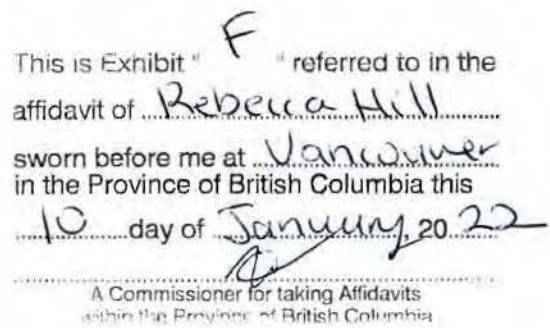 This is Exhibit " F " referred to in the
affidavit of Rebecca Hill
sworn before me at Vancouver
in the Province of British Columbia this
10 day of January, 20 22
A Commissioner for taking Affidavits
within the Province of British Columbia